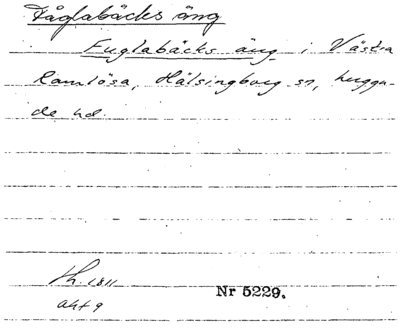 Fåglabäcks äng
Fuglabäcks äng i Västra
Ramlösa, Hälsingborg sn, Luggu-
de hd.
Lh. 1811
akt 9
Nr 5229.